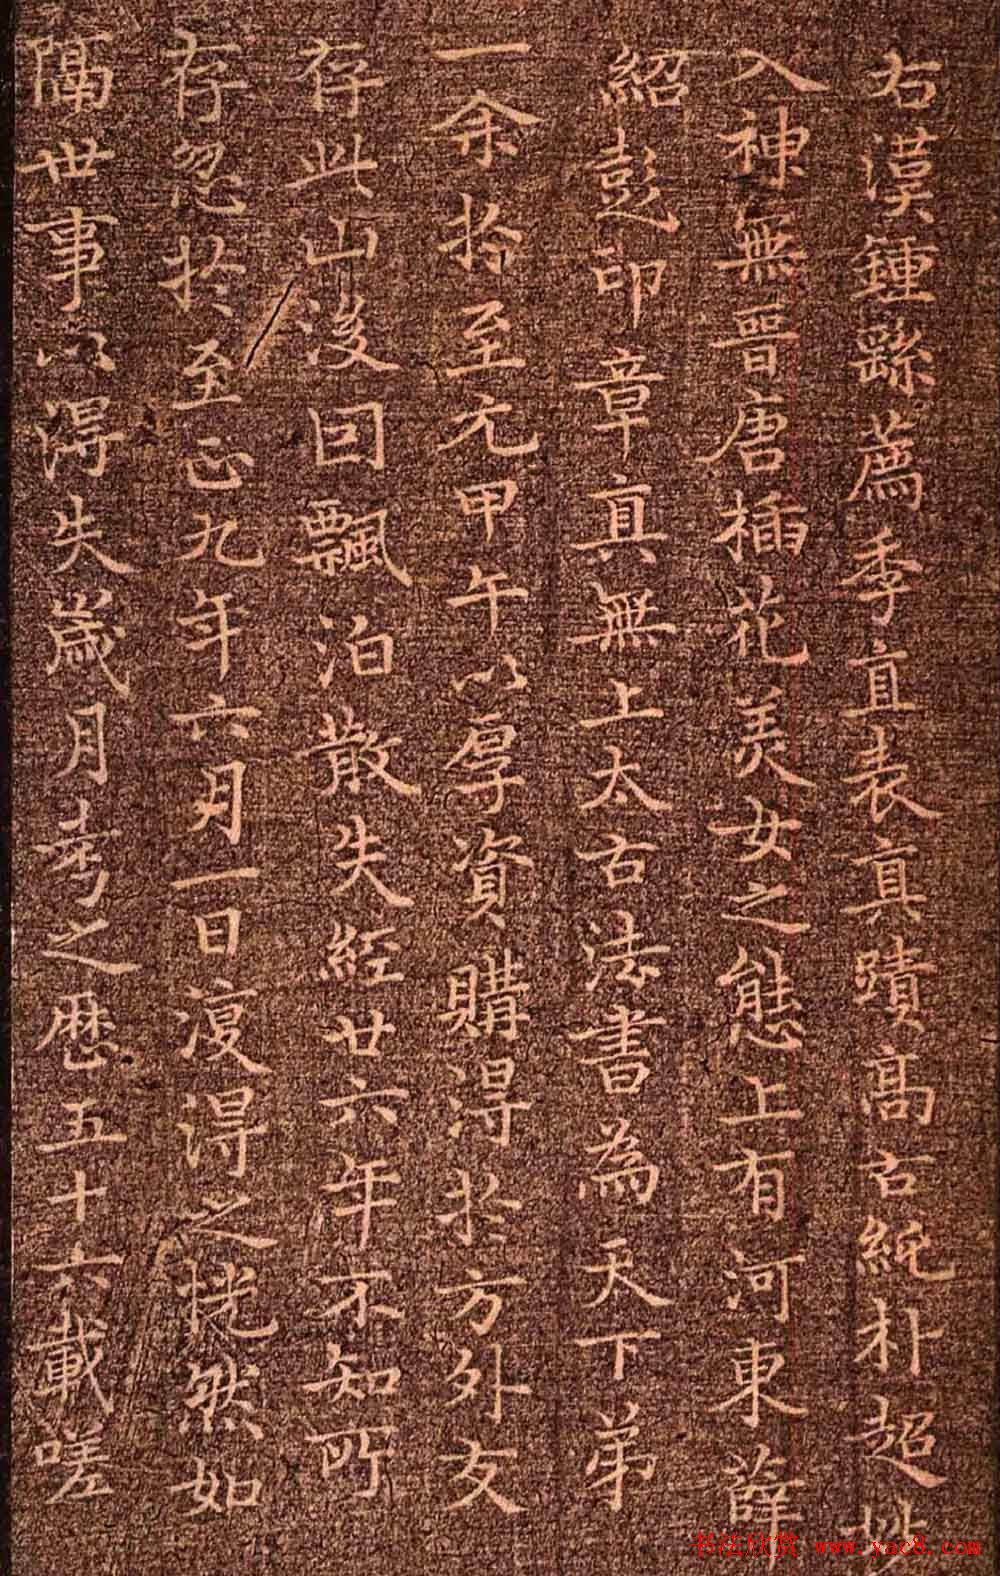 右漢鍾繇薦季直表真蹟高古純朴超妙
入神無晉唐插花美女之態上有河東薛
紹彭印章真無上太古法書為天下弟
一余於至元甲午以厚資購得於方外友
存此山後因飄泊散失經廿六年不知所
存忽於至正九年六月一日復得之恍然如
隔世事以得失歲月考之歷五十六載嗟
书法欣赏 www.yac8.com